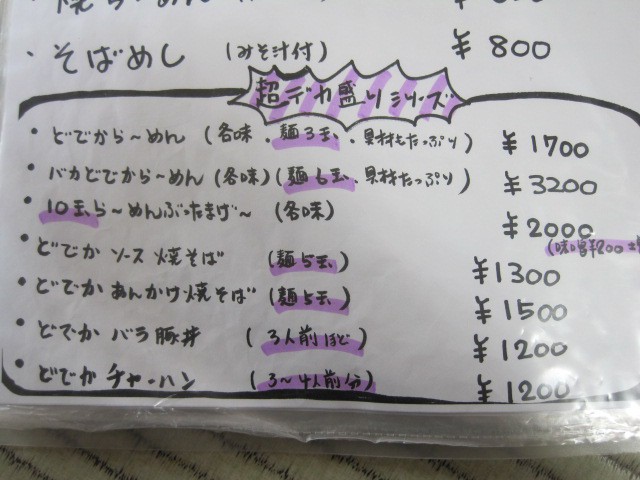 ・そばめし (みそ汁付) ¥800
超デカ盛りシリーズ
・どでから～めん (各味・麺3玉・具材もたっぷり) ¥1700
・バカどでから～めん (各味) (麺6玉、具材たっぷり) ¥3200
・10玉ら～めんぶったまげ～ (各味) ¥2000
・どでか ソース焼そば (麺5玉) ¥1300
・どでか あんかけ焼そば (麺5玉) ¥1500
・どでか バラ豚丼 (3人前ほど) ¥1200
・どでか チャーハン (3～4人前分) ¥1200